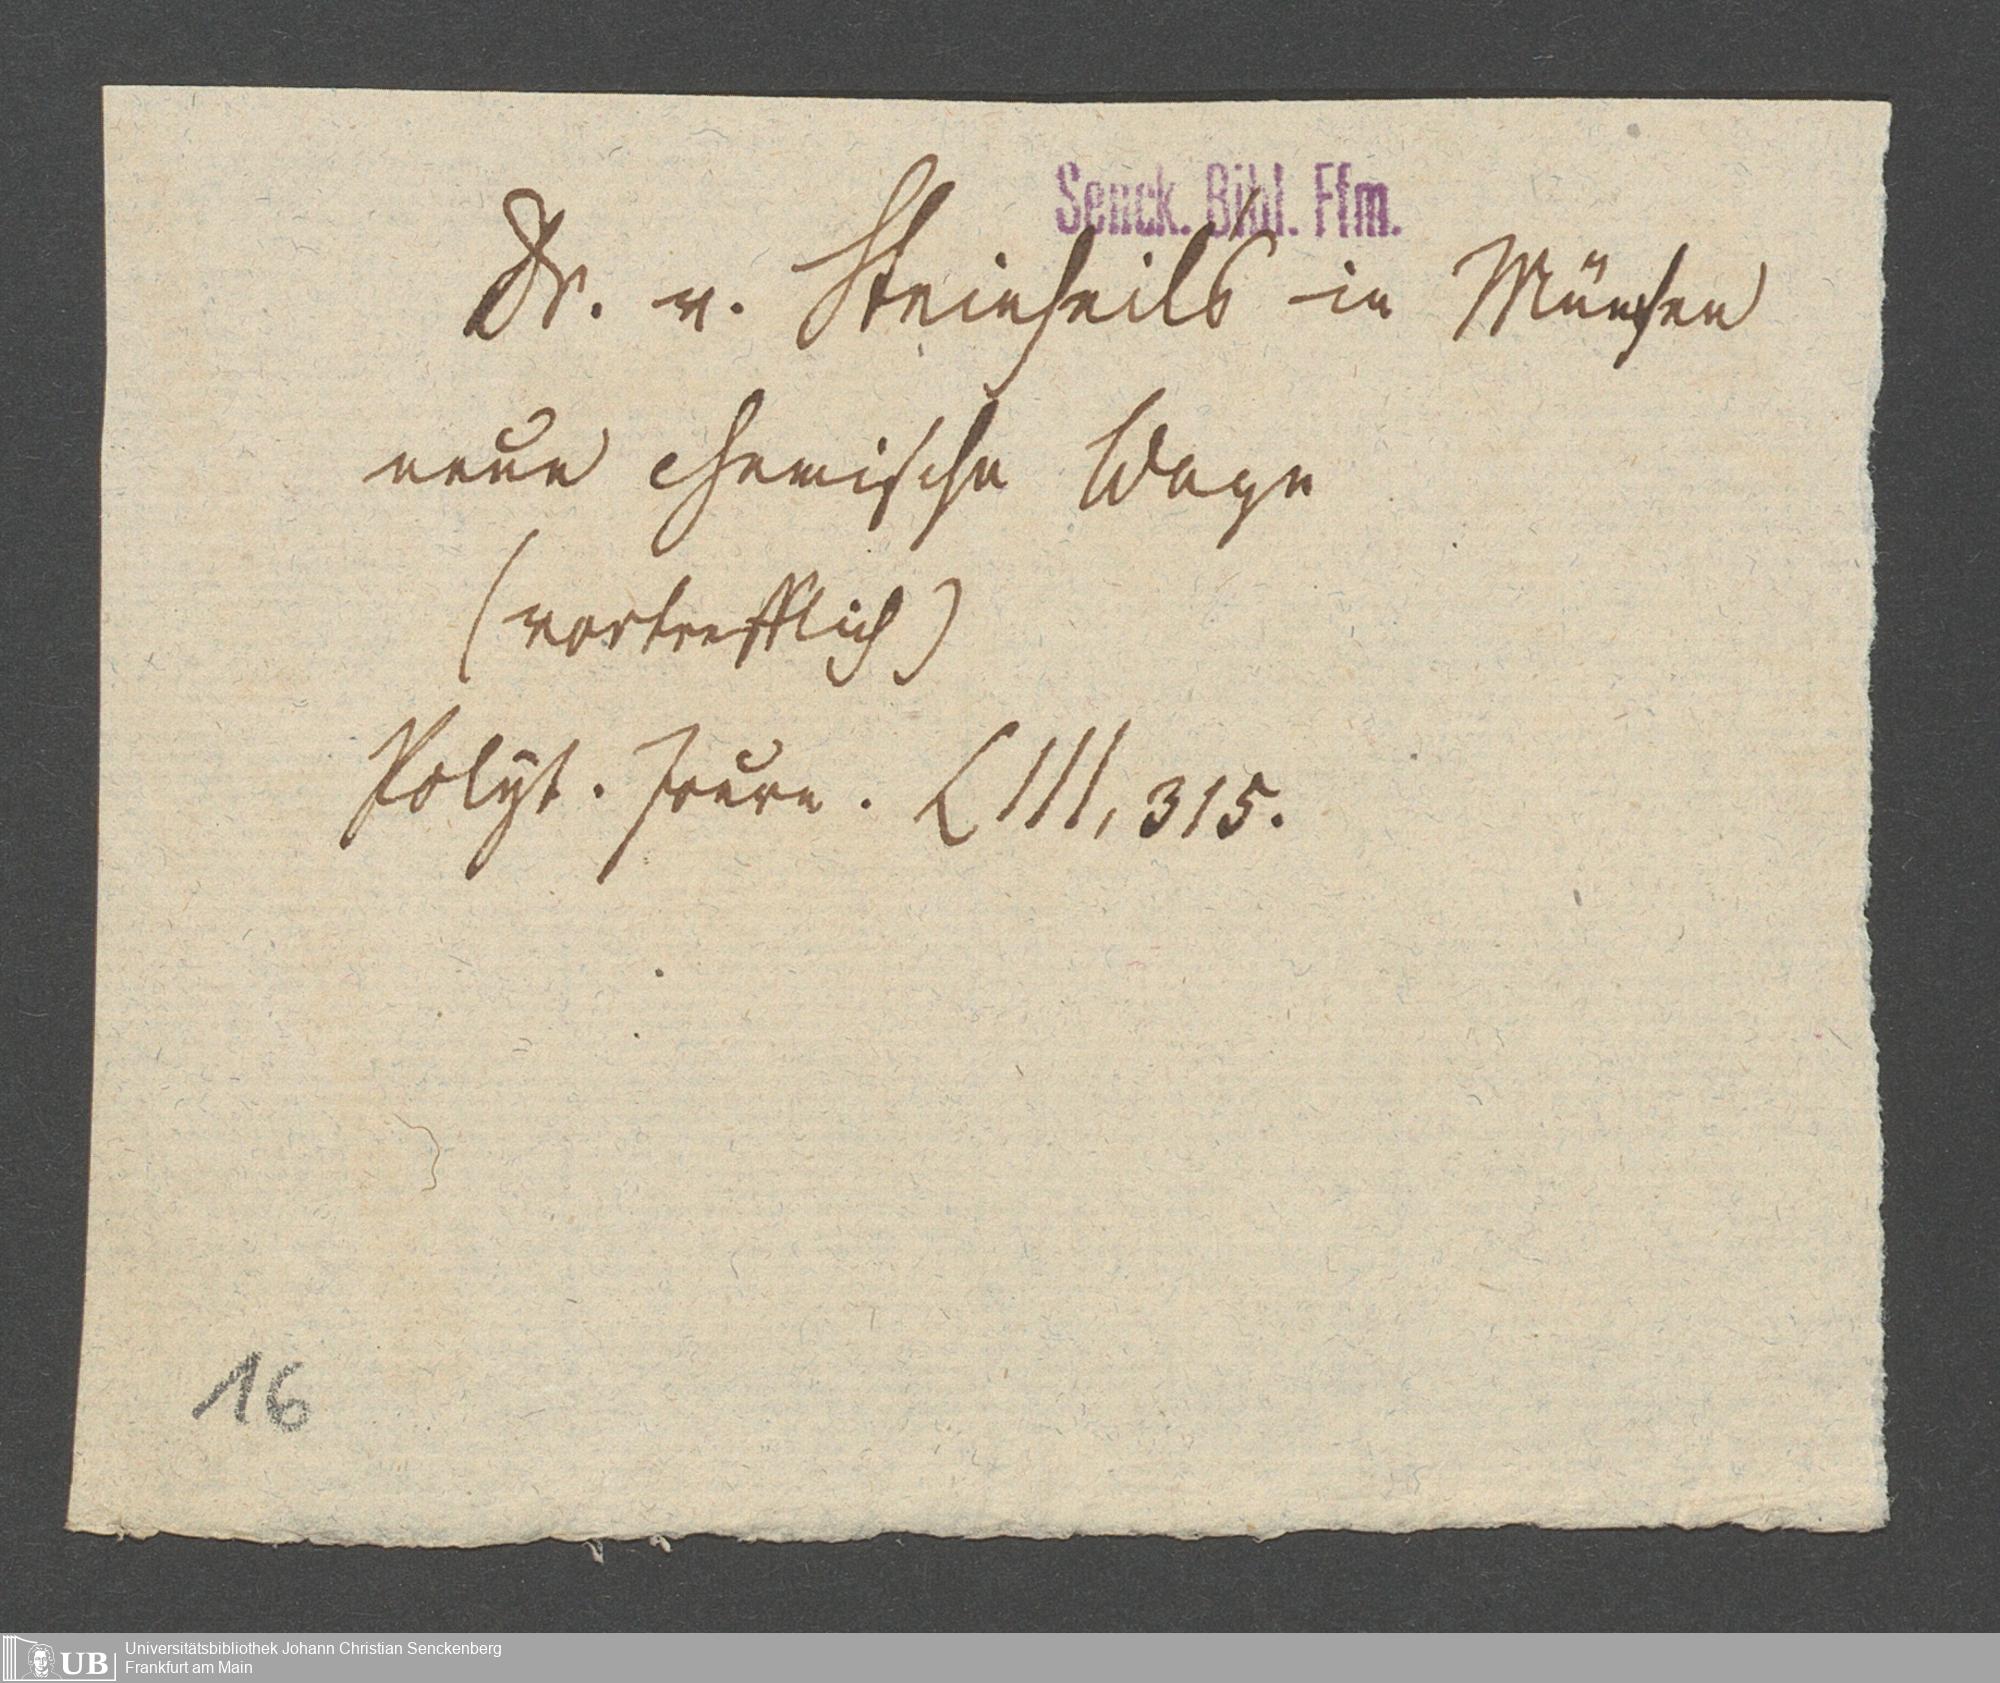 Senck. Bibl. Ffm.
Dr. v. Steinheils in München
neue chemische Wage
(vortrefflich)
Polyt. Journ. LIII, 315.
16
UB
Universitätsbibliothek Johann Christian Senckenberg
Frankfurt am Main